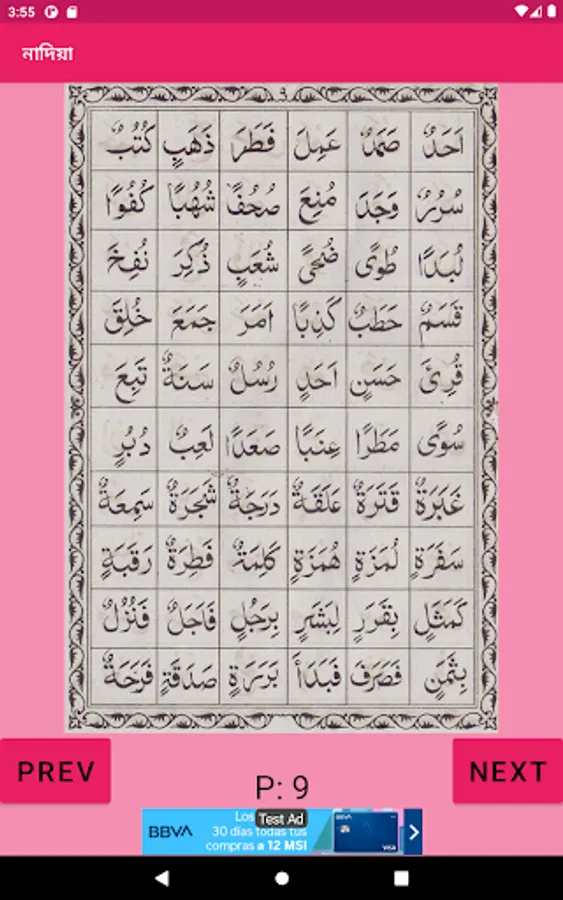 3:55
নাদিয়া
٩
اَحَدٌ صَمَدٌ عَمِلَ فَطَرَ ذَهَبٍ كُتُبٌ
سُرُرٌ وَجَدَ مُنِعَ صُحُفًا شُهُبًا كُفُوًا
لُبَدًا طُوًى ضُحًى شُعَبٍ ذُكِرَ نُفِخَ
قَسَمٌ حَطَبٌ كَذِبًا اَمَرَ جَمَعَ خُلِقَ
قُرِئَ حَسَنٍ اَحَدٍ رُسُلٌ سَنَةٌ تَبِعَ
سُوًى مَطَرًا عِنَبًا صَعَدًا لَعِبٌ دُبُرٍ
غَبَرَةٌ قَتَرَةٌ عَلَقَةٌ دَرَجَةٌ شَجَرَةٌ سَمِعَةٌ
سَفَرَةٍ لُمَزَةٍ هُمَزَةٍ كَلِمَةٌ فَطِرَةٌ رَقَبَةٍ
كَمَثَلِ بِقَرَرٍ لِبَشَرٍ بِرَجُلٍ فَاَجَلٌ فَنُزُلٌ
بِثَمَنٍ فَصَرَفَ فَبَدَأَ بَرَرَةٍ صَدَقَةٍ فَرَحَةٌ
PREV
P: 9
NEXT
BBVA
Los
Test Ad
30 días todas tus
compras a 12 MSI
BBVA
VISA